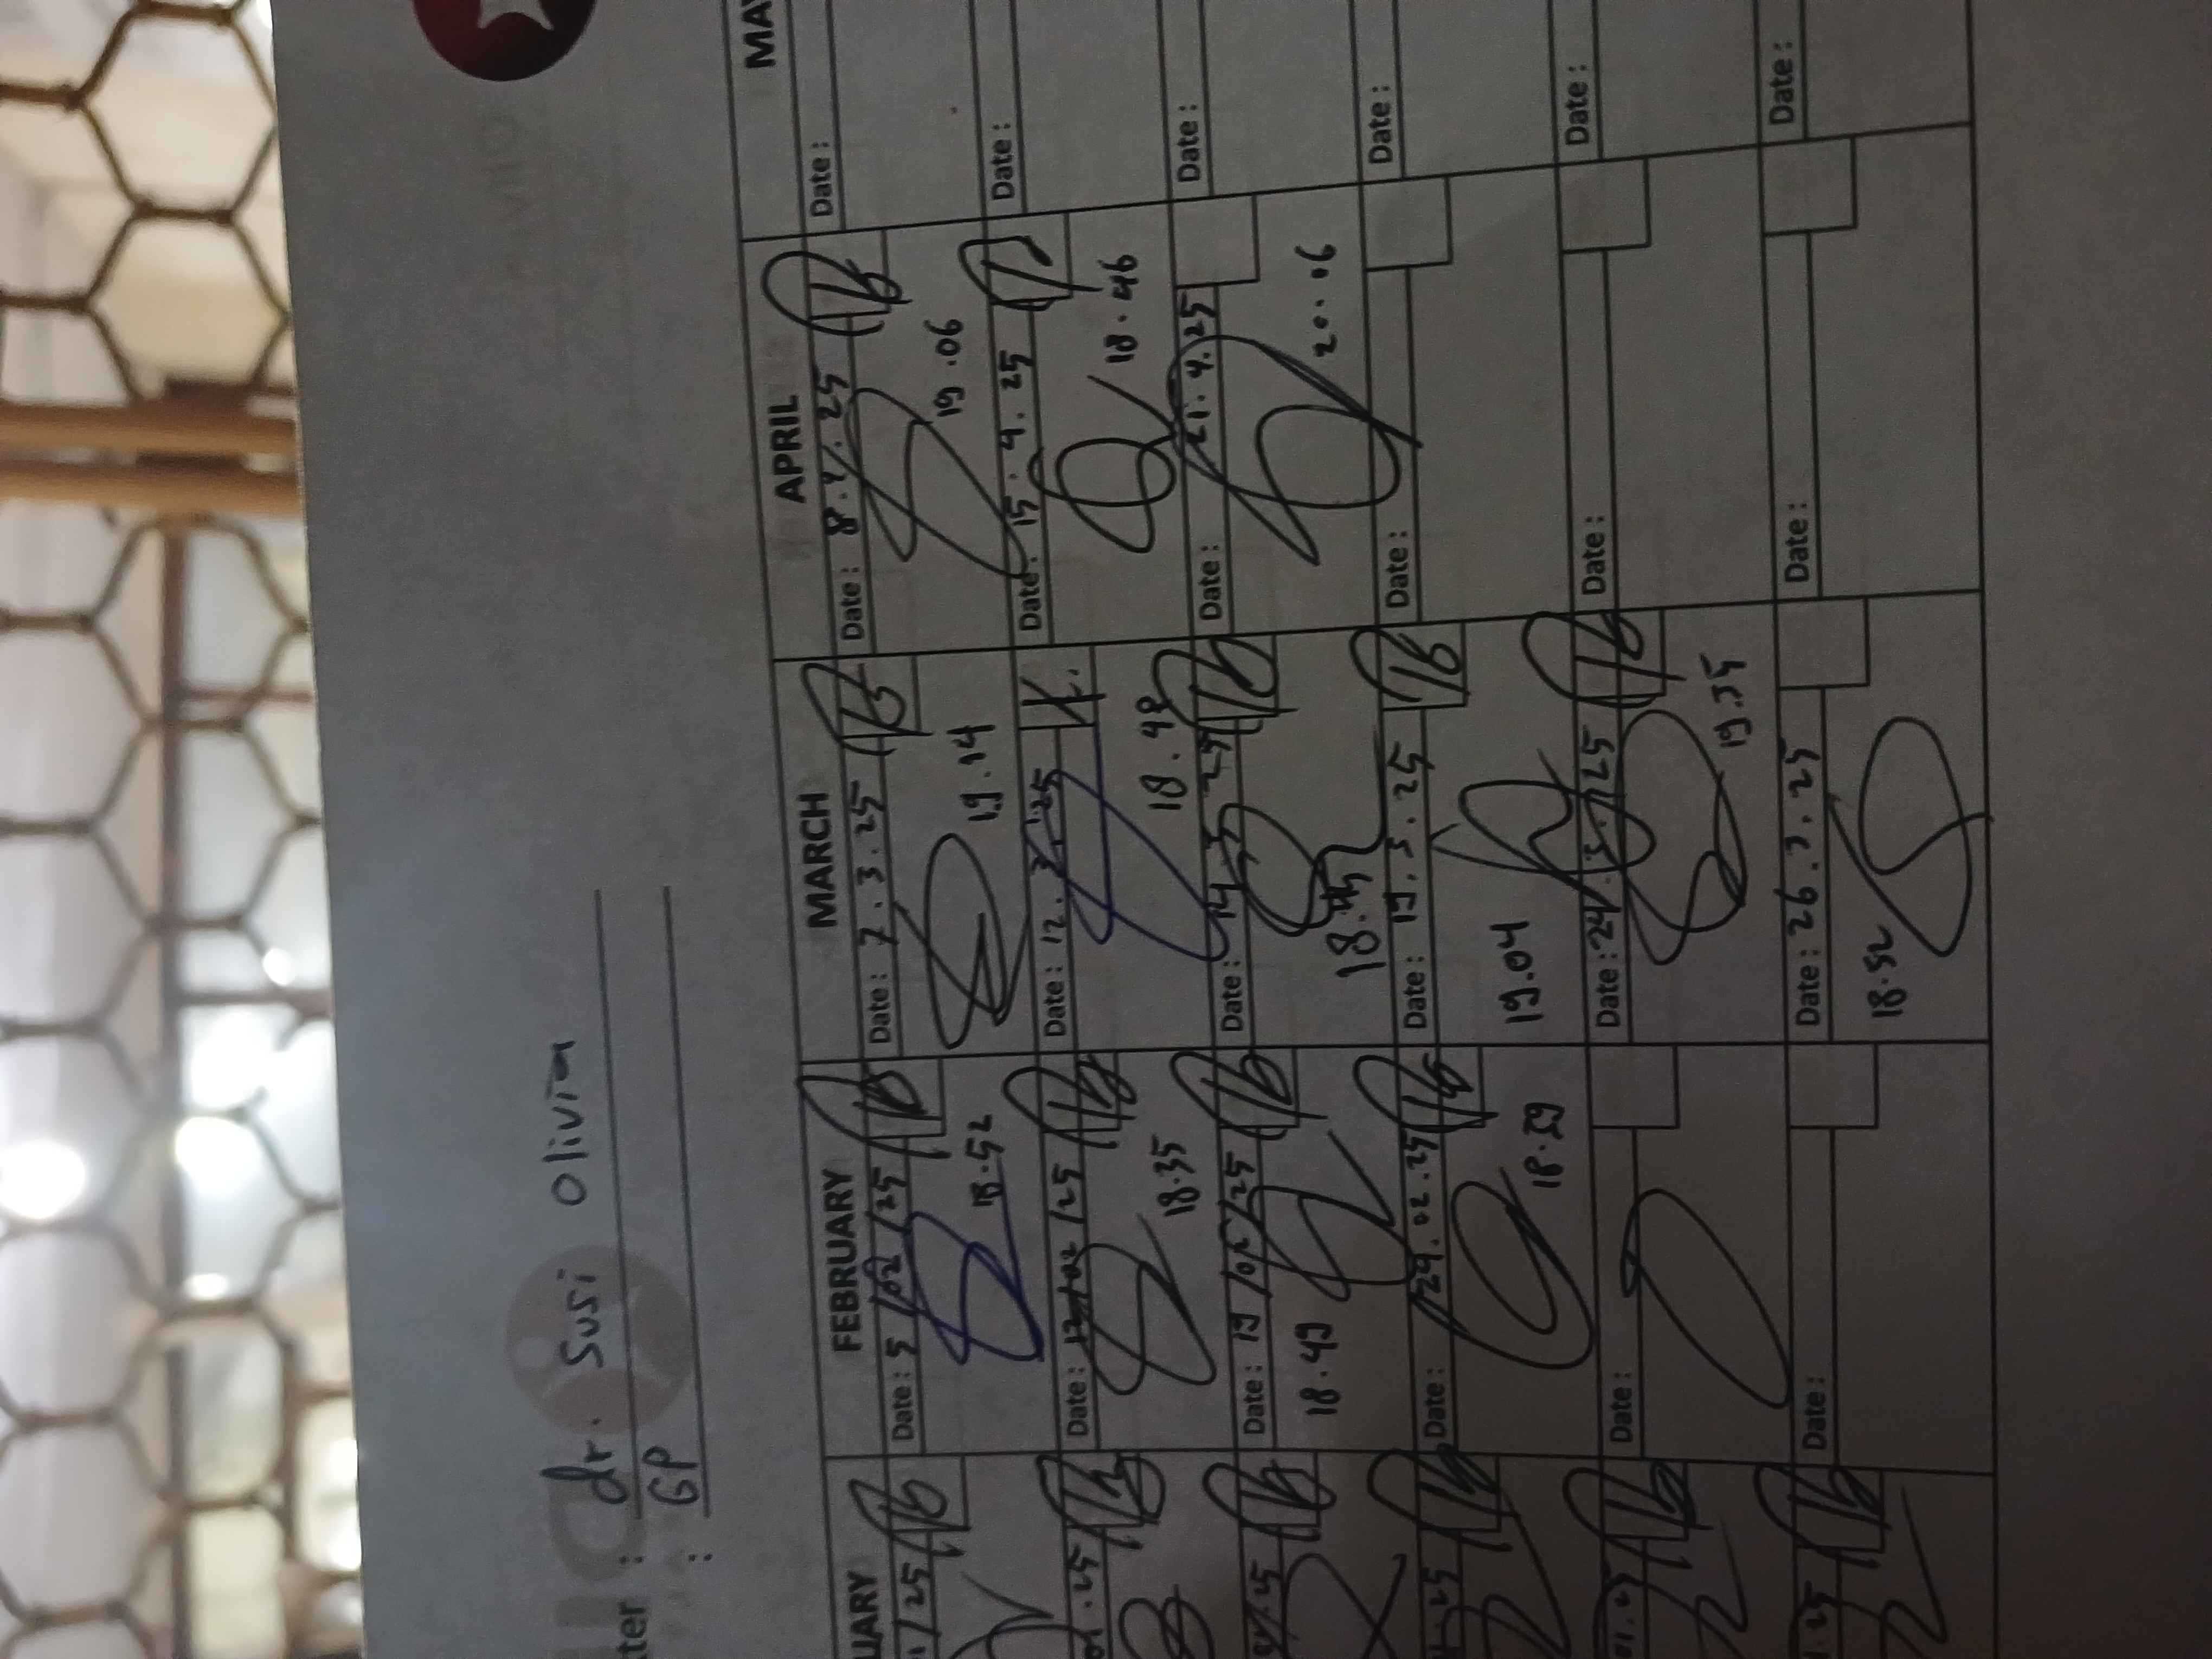 ter : dr. Susi Olivia
: GP
UARY FEBRUARY MARCH APRIL MAY
/25 Date : 5 /02 /25 Date : 7 . 3 . 25 Date : 8.4.25 Date :
18.52 19.14 19.06
.25 Date : 12/02 /25 Date : 12. 3.25 Date : 15 . 4 . 25 Date :
18.35 18.48 18.46
.25 Date : 19 /02/25 Date : 14 . 3 . 25 Date : 21.4.25 Date :
18.49 20.06
.25 Date : 24.02.25 Date : 19.3.25 Date : Date :
18.29 19.04
01.25 Date : Date : 24.3.25 Date : Date :
19.35
.25 Date : Date : 26.3.25 Date : Date :
18.52